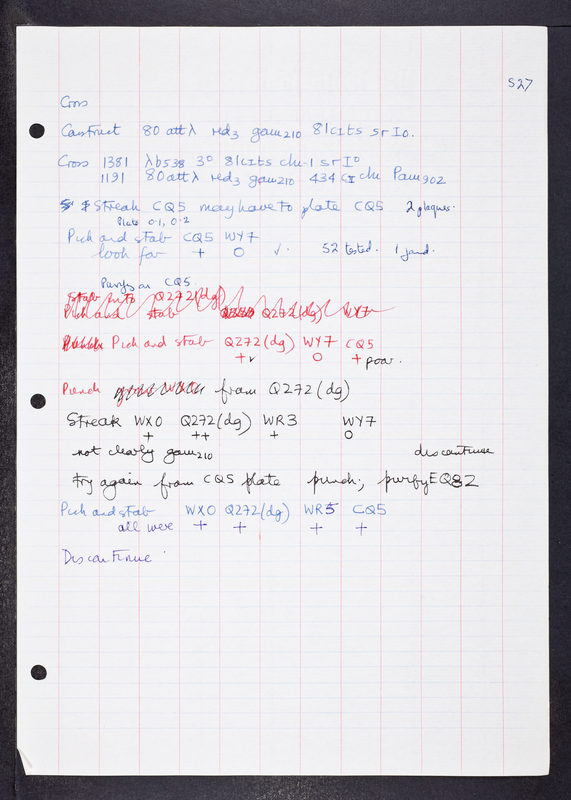 S27
Cross
Construct 80 att λ red3 gam210 81cIts srI0.
Cross 1381 λb538 3° 81cIts chi-1 srI°
1191 80att λ red3 gam210 434 cI chi Pam902
Streak CQ5 may have to plate CQ5 2 plaques.
Plate 0.1, 0.2
Pick and stab CQ5 WY7
look for + O ✓. 52 tested. 1 found.
Purify on CQ5
Stab into Q272(dg)
Pick and stab Q272(dg) WY7
Pick and stab Q272(dg) WY7 CQ5
+✓ O + poor.
Punch from Q272(dg)
Streak WX0 Q272(dg) WR3 WY7
+ ++ + O
not clearly gam210 discontinue
Try again from CQ5 plate punch; purify EQ82
Pick and stab WX0 Q272(dg) WR5 CQ5
all were + + + +
Discontinue